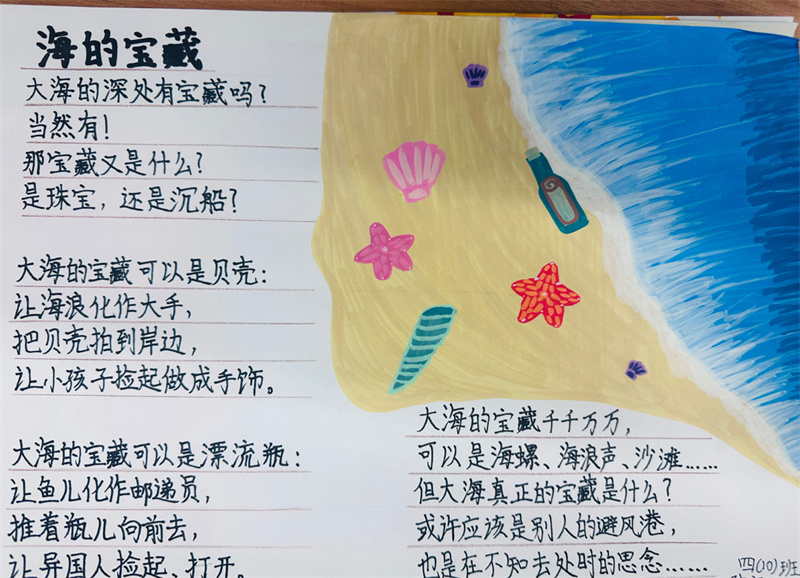 海的宝藏
大海的深处有宝藏吗?
当然有!
那宝藏又是什么?
是珠宝,还是沉船?
大海的宝藏可以是贝壳:
让海浪化作大手,
把贝壳拍到岸边,
让小孩子捡起做成手饰。
大海的宝藏可以是漂流瓶:
让鱼儿化作邮递员,
推着瓶儿向前去,
让异国人捡起、打开。
大海的宝藏千千万万,
可以是海螺、海浪声、沙滩……
但大海真正的宝藏是什么?
或许应该是别人的避风港,
也是在不知去处时的思念……
四(10)班